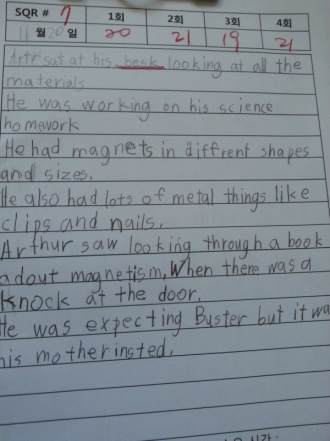 SQR # 7 1회 2회 3회 4회
11월 20일 20 21 19 21
Artr sat at his besk looking at all the
materials
He was working on his science
homework
He had magnets in different shapes
and sizes.
He also had lots of metal things like
clips and nails.
Arthur saw looking through a book
adout magnetism, When there was a
knock at the door.
He was expecting Buster but it wa
his mother insted.
시간